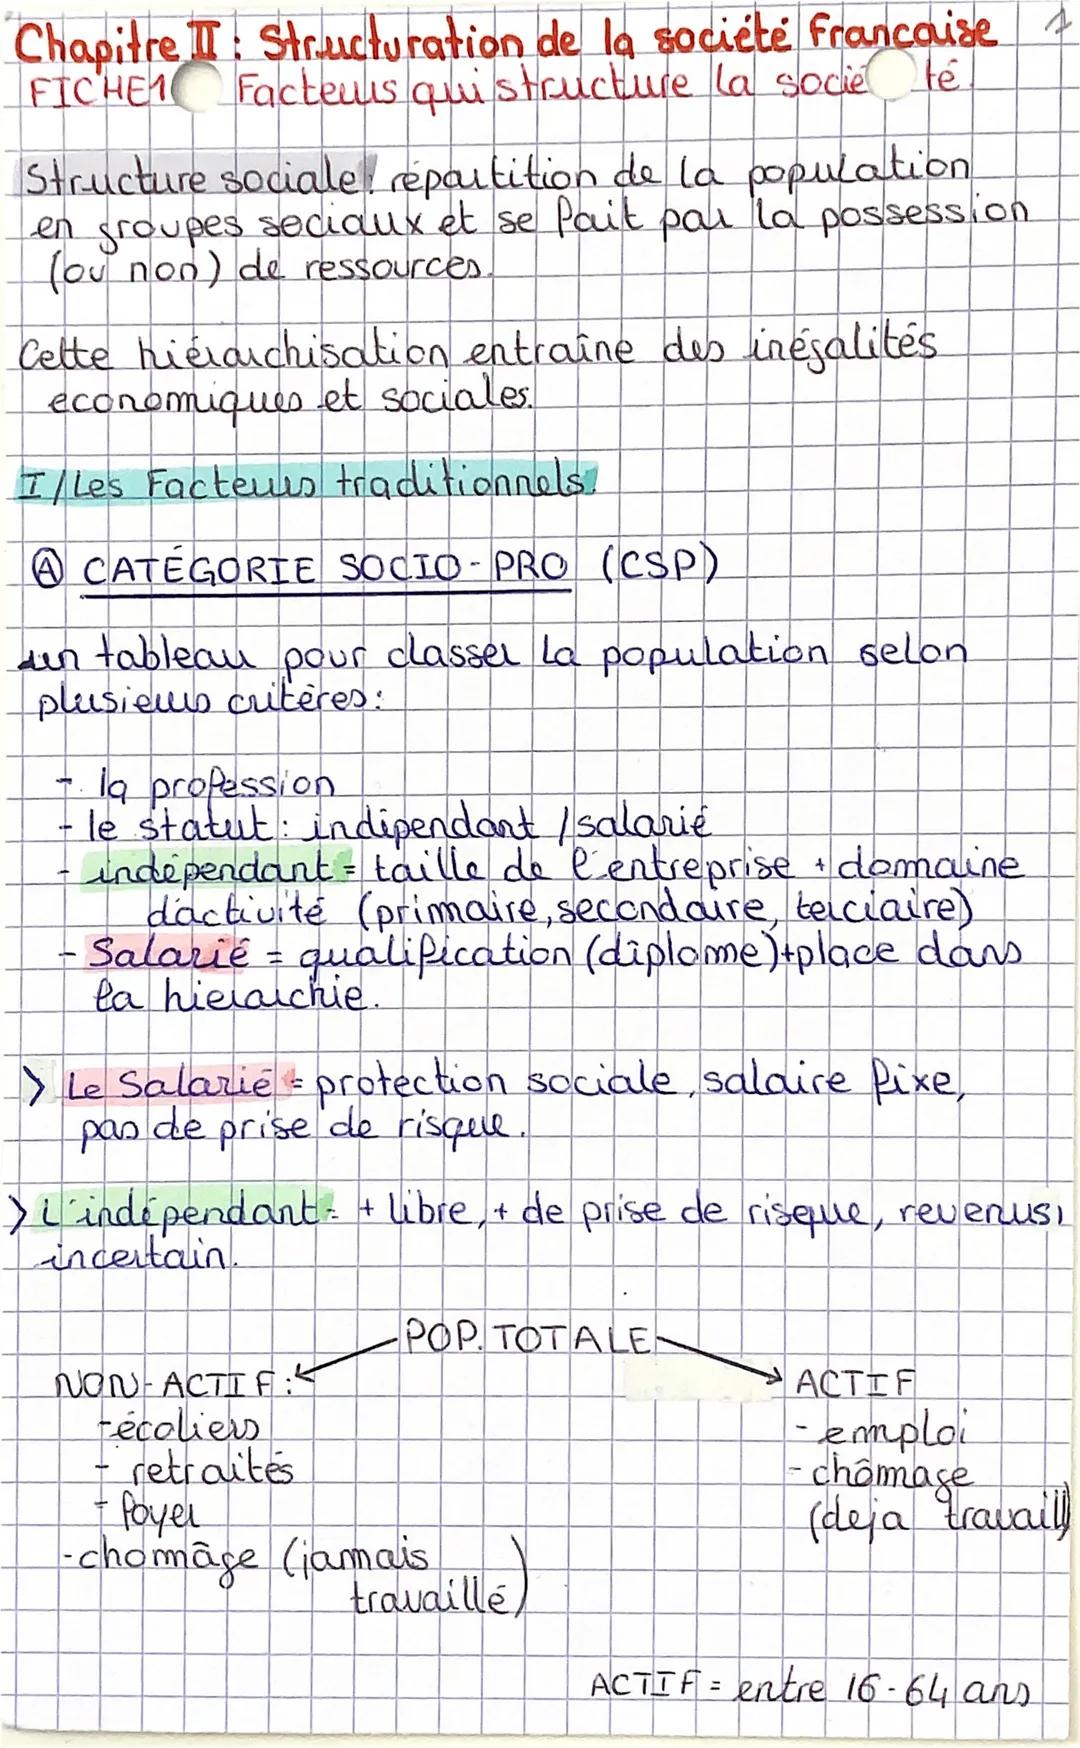 1
Chapitre II : Structuration de la société Francaise
FICHE1 Facteurs qui structure la socie té.
Structure sociale: répartition de la population
en groupes sociaux et se fait par la possession
(ou non) de ressources.
Cette hiérarchisation entraîne des inégalités
economiques et sociales.
I/Les Facteurs traditionnels:
Ⓐ CATÉGORIE SOCIO-PRO (CSP)
un tableau pour classer la population selon
plusieurs critères:
- la profession
- le statut: indépendant / salarié
- indépendant = taille de l'entreprise + domaine
d'activité (primaire, secondaire, terciaire)
- Salarié = qualification (diplome)+place dans
la hierarchie.
> Le Salarié = protection sociale, salaire fixe,
pas de prise de risque.
> L'indépendant = + libre, + de prise de risque, revenus
incertain.
POP. TOTALE
NON-ACTIF:
- écoliers
- retraités
- foyer
- chomâge (jamais
travaillé)
ACTIF
- emploi
- chômage
(deja travaill)
ACTIF = entre 16-64 ans